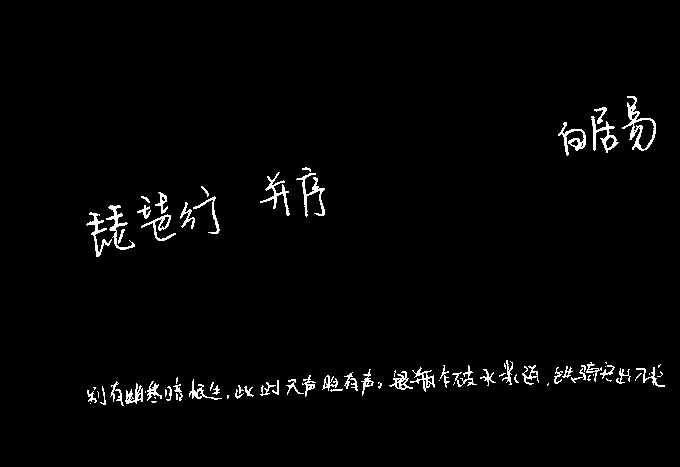 白居易
琵琶行 并序
别有幽愁暗恨生，此时无声胜有声。银瓶乍破水浆迸，铁骑突出刀枪